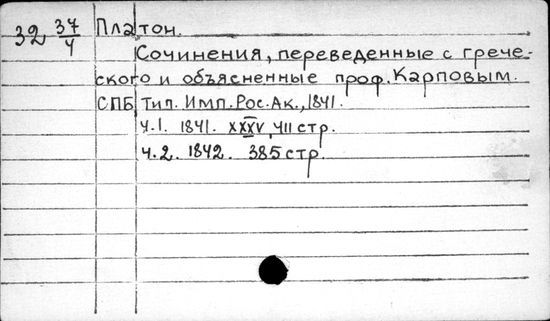 32 37/4 Платон.
Сочинения, переведенные с грече-
ского и объясненные проф. Карповым.
СПБ, Тип. Имп. Рос. Ак., 1841.
Ч.1. 1841. XXXV, 411 стр.
ч.2. 1842. 385 стр.